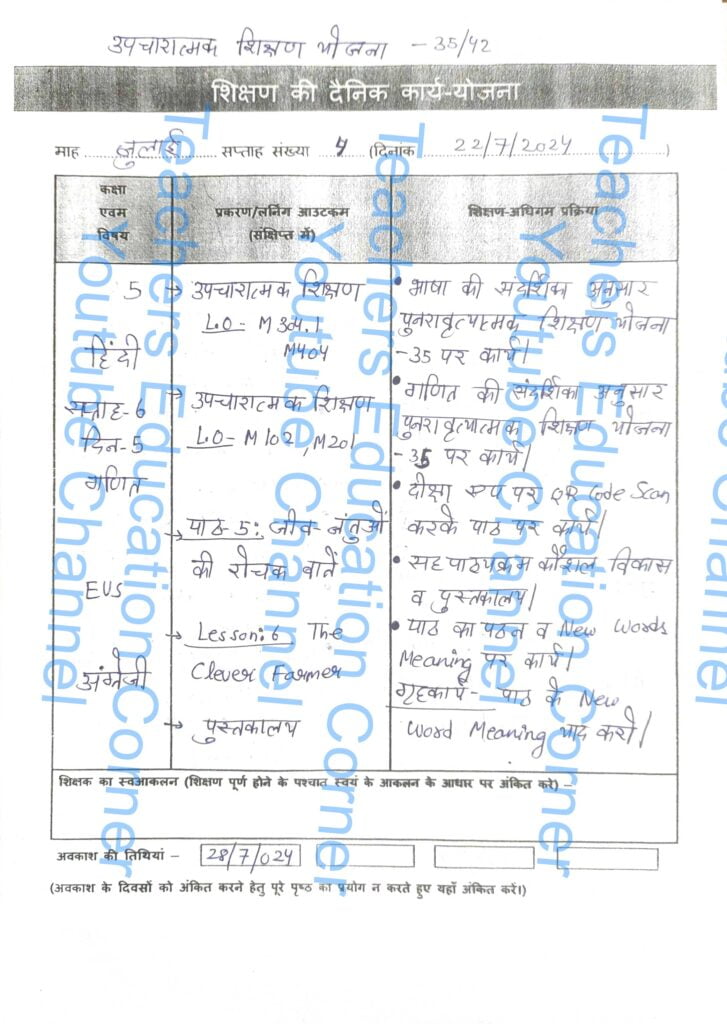 उपचारात्मक शिक्षण योजना - 35/42
शिक्षण की दैनिक कार्य-योजना
माह जुलाई सप्ताह संख्या 4 (दिनांक 22/7/2024)
कक्षा एवम विषय
प्रकरण/लर्निंग आउटकम (संक्षिप्त में)
शिक्षण-अधिगम प्रक्रिया
5
हिंदी
सप्ताह-6
दिन-5
गणित
EVS
अंग्रेजी
→ उपचारात्मक शिक्षण
L.O- M 304.1
M404
→ उपचारात्मक शिक्षण
L.O- M102, M201
→ पाठ-5: जीव-जंतुओं
की रोचक बातें
→ Lesson:6 The
Clever Farmer
→ पुस्तकालय
• भाषा की संदर्शिका अनुसार
पुनरावृत्यात्मक शिक्षण योजना
-35 पर कार्य।
• गणित की संदर्शिका अनुसार
पुनरावृत्यात्मक शिक्षण योजना
-35 पर कार्य।
• दीक्षा एप पर QR Code Scan
करके पाठ पर कार्य।
• सहपाठ्यक्रम कौशल विकास
व पुस्तकालय।
• पाठ का पठन व New Words
Meaning पर कार्य।
गृहकार्य- पाठ के New
Word Meaning याद करो।
शिक्षक का स्वआकलन (शिक्षण पूर्ण होने के पश्चात स्वयं के आकलन के आधार पर अंकित करे) –
अवकाश की तिथियां – 28/7/024
(अवकाश के दिवसों को अंकित करने हेतु पूरे पृष्ठ का प्रयोग न करते हुए यहाँ अंकित करें।)
Teachers Education Corner
Youtube Channel
Teachers Education Corner
Youtube Channel